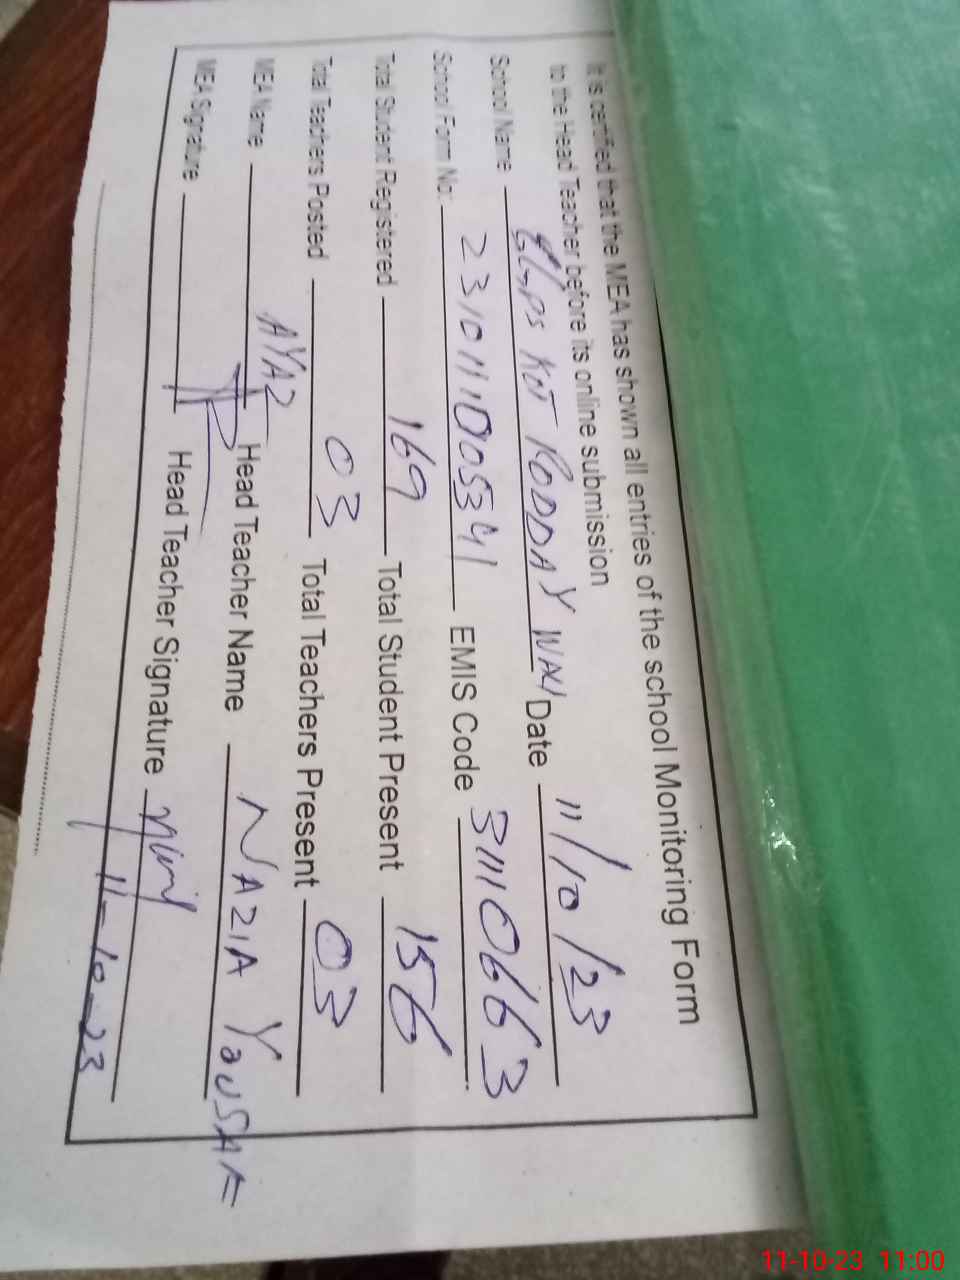 It is certified that the MEA has shown all entries of the school Monitoring Form
to the Head Teacher before its online submission
School Name GGPS KOT RODDAY WALI Date 11/10/23
School Form No: 2310111005341 EMIS Code 31110663
Total Student Registered 169 Total Student Present 156
Total Teachers Posted 03 Total Teachers Present 03
MEA Name AYAZ Head Teacher Name NAZIA YOUSAF
MEA Signature Head Teacher Signature
11-10-23
11-10-23 11:00